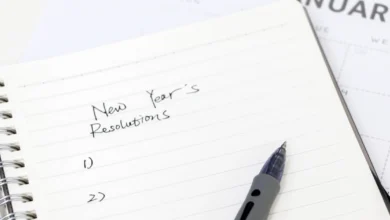 NUAR
New Year's
Resolutions
1)
2)